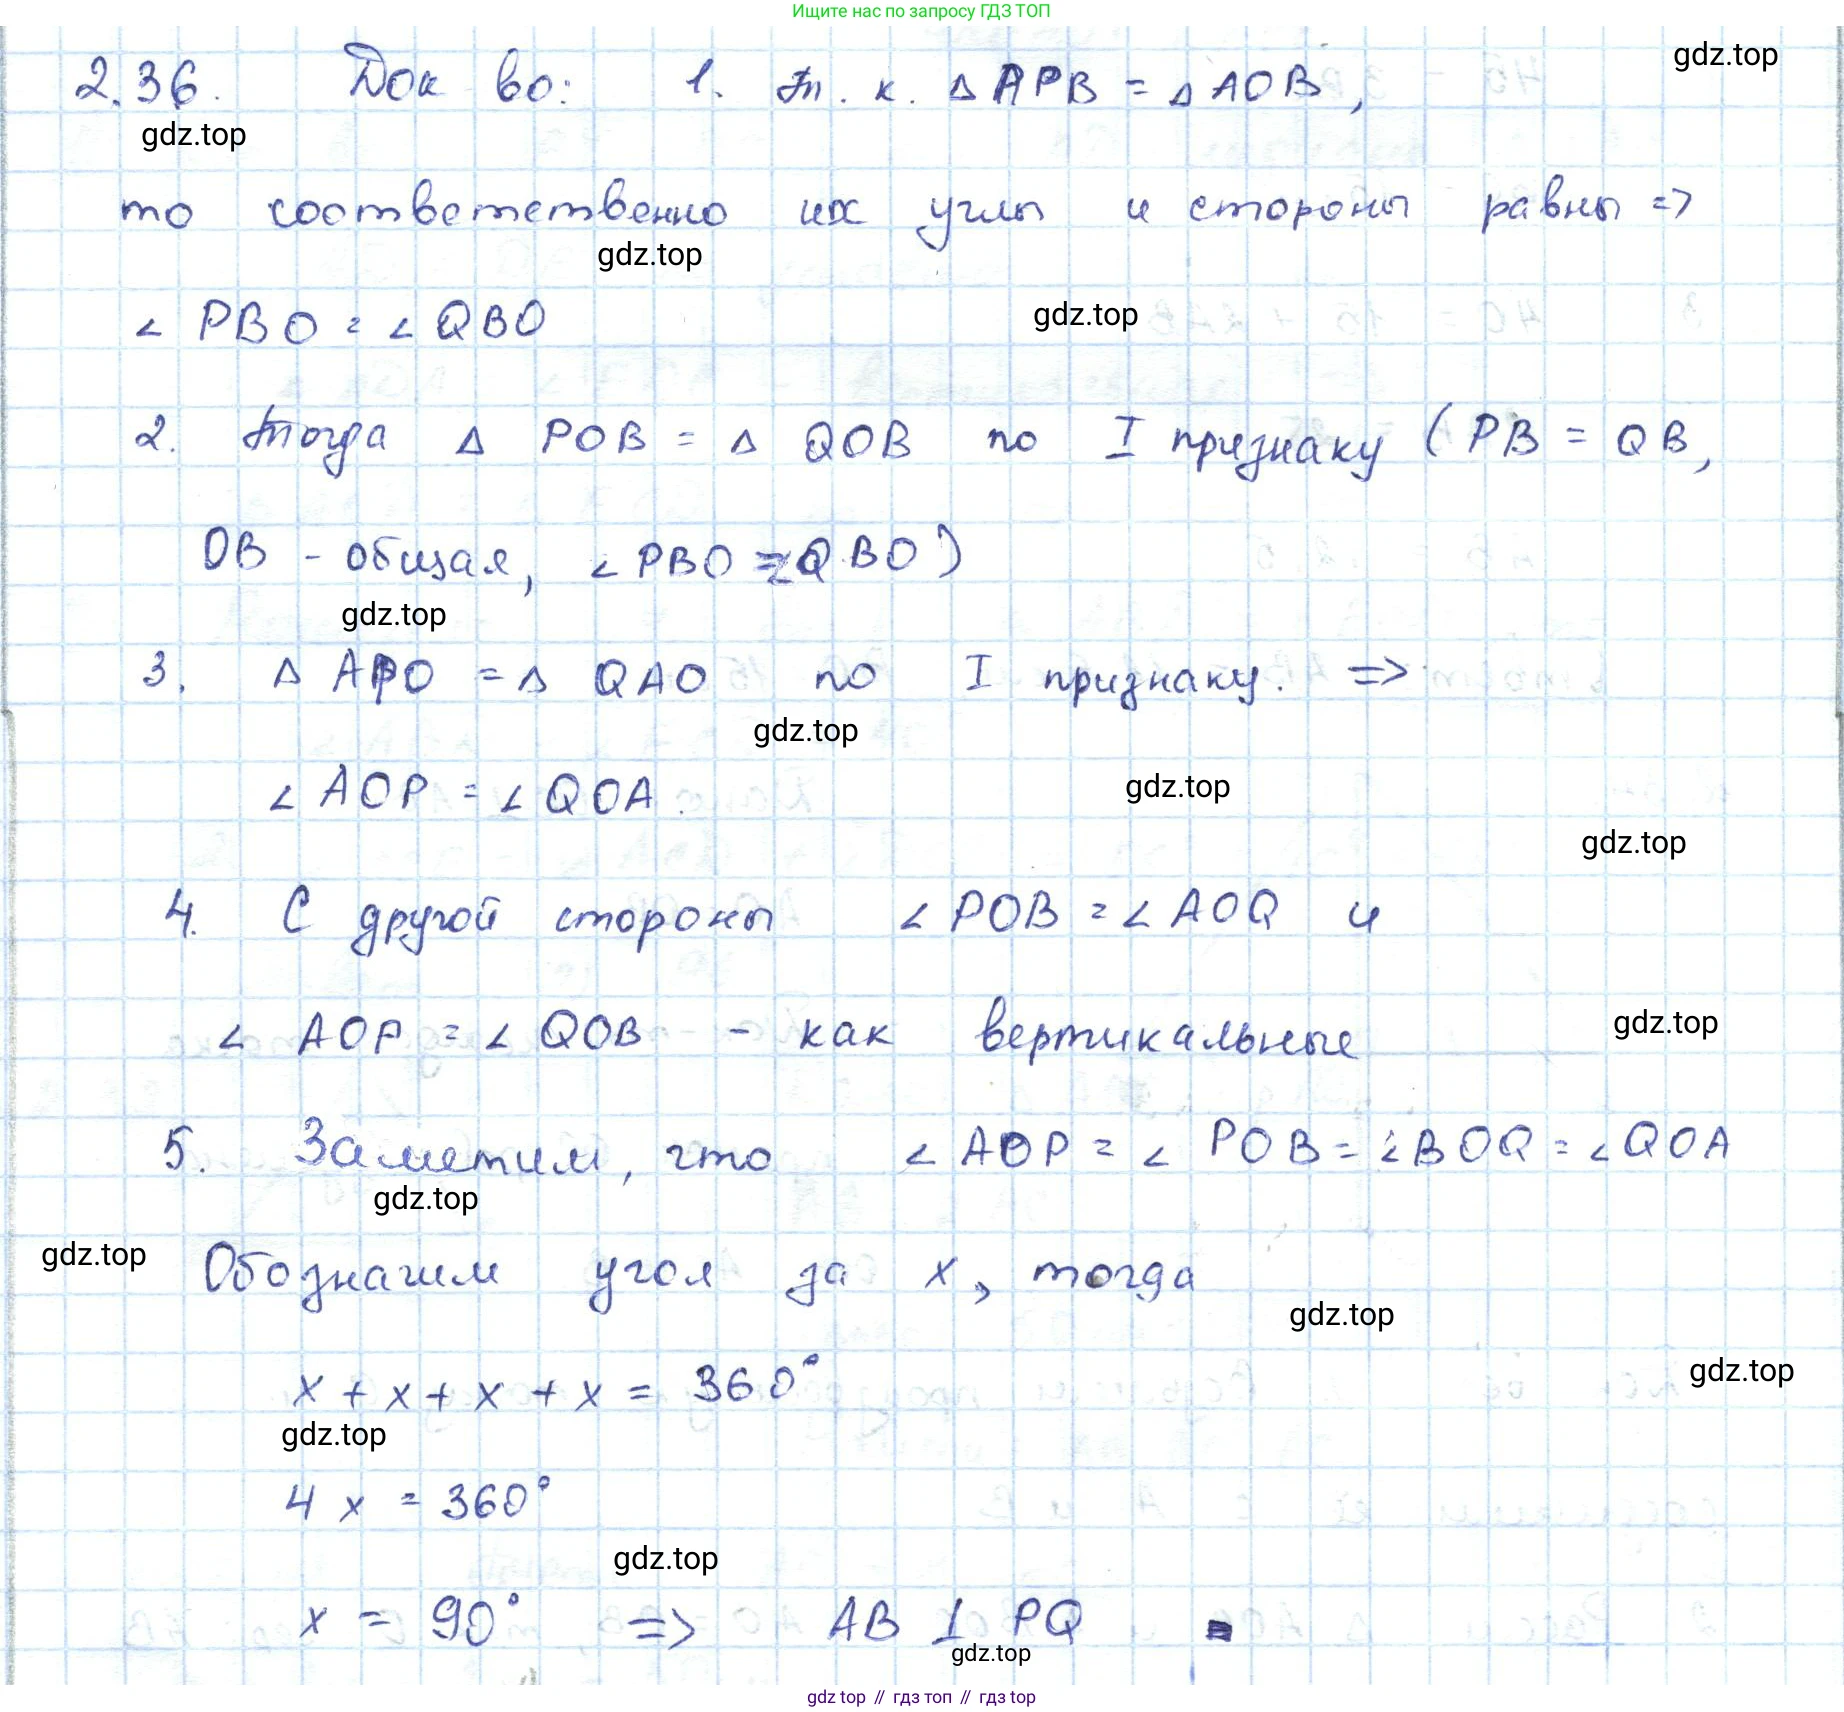 Ищите нас по запросу ГДЗ ТОП
gdz.top
2.36. Док во: 1. Т. к. △ APB = △ AOB,
gdz.top
то соответственно их углы и стороны равны =>
gdz.top
gdz.top
∠ PBO = ∠ QBO
2. Тогда △ POB = △ QOB по I признаку (PB = QB,
OB - общая, ∠ PBO = ∠QBO)
gdz.top
3. △ APO = △ QAO по I признаку. =>
gdz.top
∠ AOP = ∠ QOA.
gdz.top
gdz.top
4. С другой стороны ∠ POB = ∠ AOQ и
∠ AOP = ∠ QOB - как вертикальные
gdz.top
5. Заметим, что ∠ AOP = ∠ POB = ∠BOQ = ∠QOA
gdz.top
gdz.top
Обозначим угол за x, тогда
gdz.top
gdz.top
x + x + x + x = 360°
gdz.top
4 x = 360°
gdz.top
x = 90° => AB ⊥ PQ
gdz.top
gdz top // гдз топ // гдз top